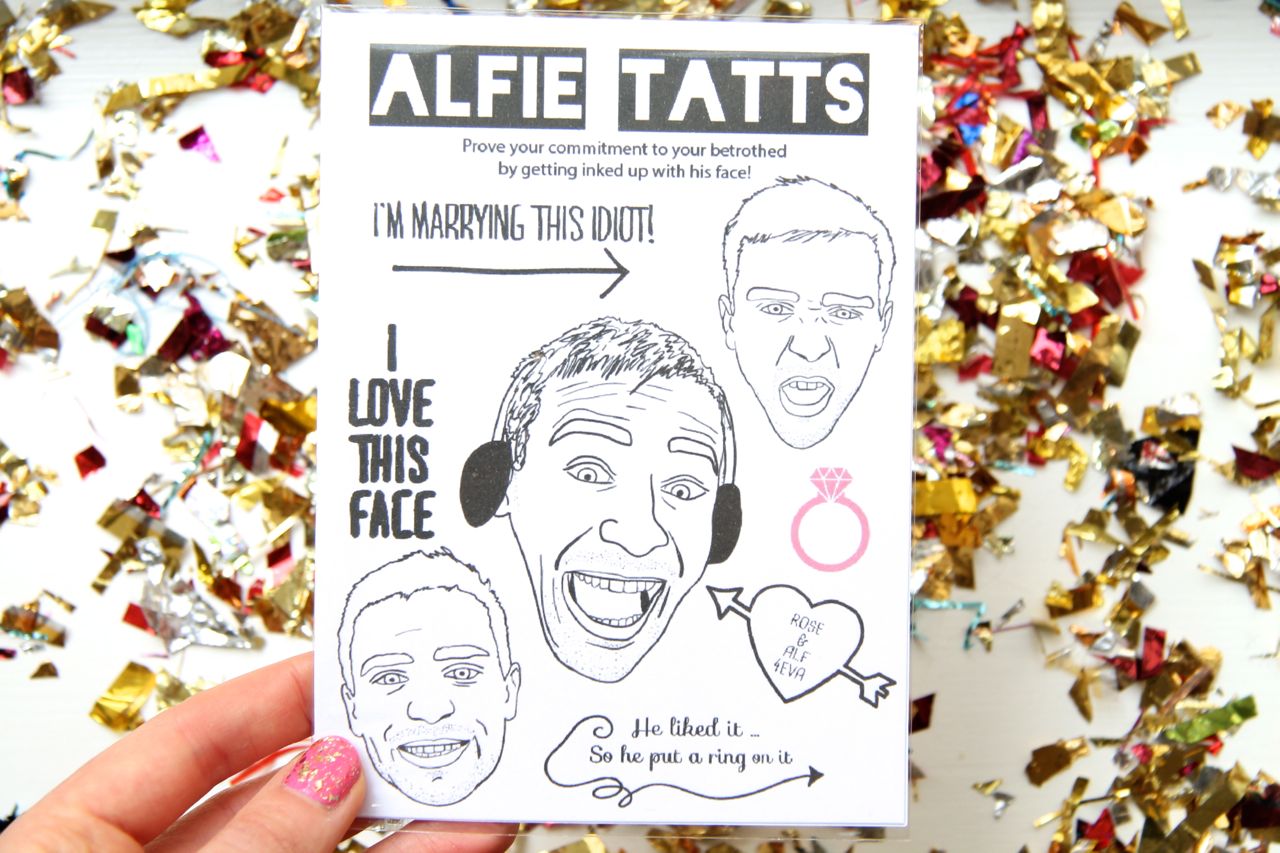 ALFIE TATTS
Prove your commitment to your betrothed
by getting inked up with his face!
I'M MARRYING THIS IDIOT!
I
LOVE
THIS
FACE
ROSE
&
ALF
4EVA
He liked it ...
So he put a ring on it